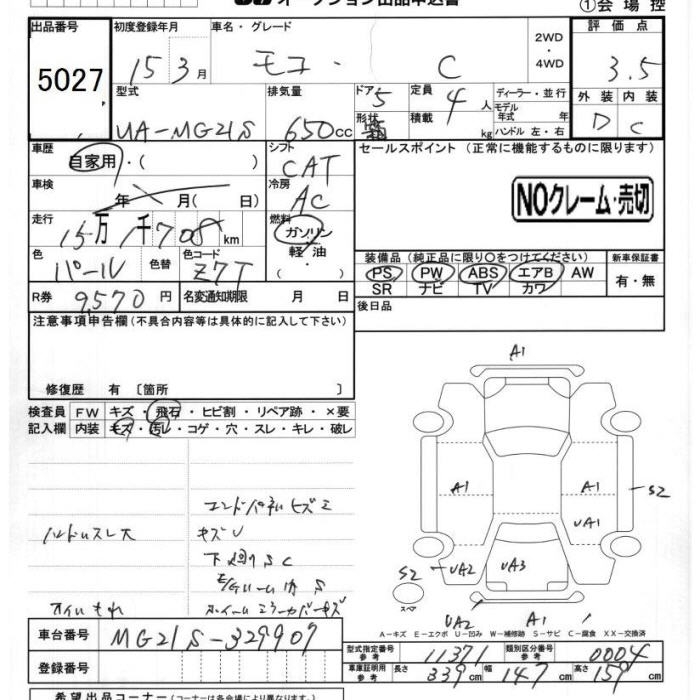 オークション出品申込書 ①会場控
出品番号 初度登録年月 車名・グレード 2WD ・ 4WD 評価点
5027 15 3月 モコ・ C 3.5
型式 排気量 ドア 5 定員 4人 ディーラー・並行 外装 内装
形状 積載 kg モデル年式 年 D C
UA-MG21S 650cc ハンドル 左・右
車歴 シフト セールスポイント (正常に機能するものに限ります)
自家用・( ) CAT
車検 年 月( 日) 冷房 AC NOクレーム・売切
走行 15万1千708km 燃料 ガソリン 軽油 ( )
装備品 (純正品に限り○をつけてください) 新車保証書
色 パール 色替 色コード Z7T PS PW ABS エアB AW 有・無
SR ナビ TV カワ
R券 9,570円 名変通知期限 月 日 後日品
注意事項申告欄 (不具合内容等は具体的に記入して下さい)
修復歴 有 〔箇所 〕
検査員 FW キズ・飛石・ヒビ割・リペア跡・×要
記入欄 内装 キズ・汚レ・コゲ・穴・スレ・キレ・破レ
A1
A1 A1 S2
UA1
UA2 UA3
S2
スペア
UA2 A1
エンドパネルヒズミ
ハンドルスレ大 キズU
下廻りSC
S
オイルもれ ホイールミラーカバーキズ
A-キズ E-エクボ U-凹み W-補修跡 S-サビ C-腐食 XX-交換済
車台番号 MG21S-329907
型式指定番号 参考 11371 類別区分番号 参考 0004
登録番号
車庫証明用 参考 長さ 339cm 幅 147cm 高さ 159cm
希望出品コーナー (コーナーは各会場により異なります)